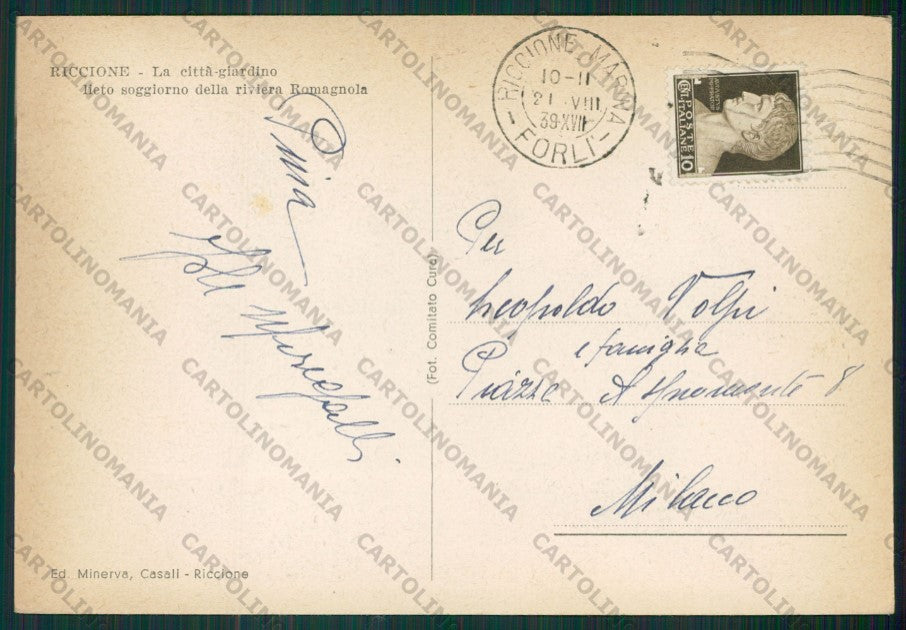 RICCIONE - La città-giardino
lieto soggiorno della riviera Romagnola
RICCIONE MARINA
10-11
21 VIII
39·XVII
- FORLI -
POSTE ITALIANE
10
Pinia
(Fot. Comitato Cura)
Per
Leopoldo Volpi
e famiglia
Piazza Aspromonte 8
Milano
Ed. Minerva, Casali - Riccione
CARTOLINOMANIA